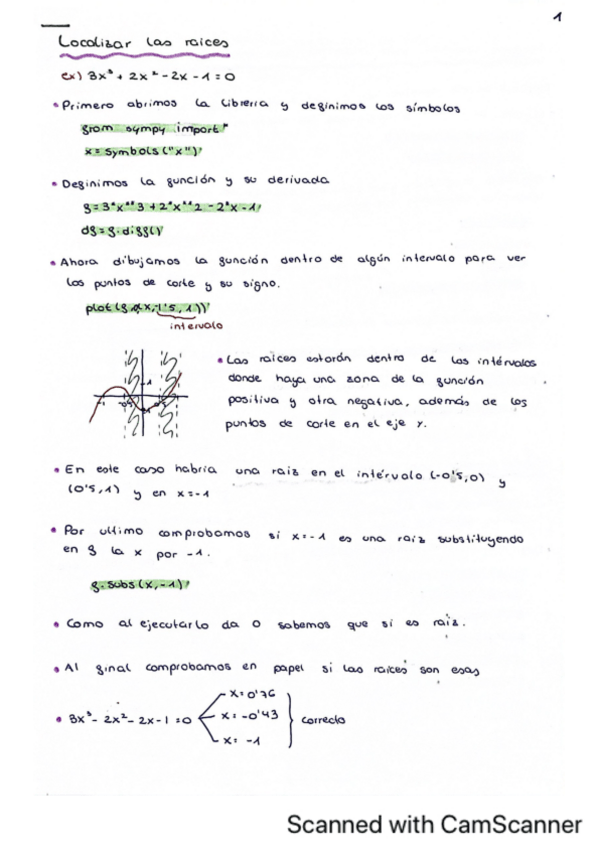 1
Localizar las raices
ex) 3x³ + 2x² - 2x - 1 = 0
• Primero abrimos la libreria y definimos los símbolos
from sympy import*
x = symbols("x")
• Definimos la función y su derivada
f = 3*x**3 + 2*x**2 - 2*x - 1
df = f.diff()
• Ahora dibujamos la función dentro de algún intervalo para ver
los puntos de corte y su signo.
plot (f, (x, -1'5, 1))
intervalo
• Las raices estarán dentro de los intérvalos
donde haya una zona de la función
positiva y otra negativa, además de los
puntos de corte en el eje x.
• En este caso habria una raiz en el intérvalo (-0'5,0) y
(0'5,1) y en x=-1
• Por ultimo comprobamos si x=-1 es una raiz substituyendo
en f la x por -1.
f.subs(x,-1)
• Como al ejecutarlo da 0 sabemos que si es raiz.
• Al final comprobamos en papel si las raices son esas
• 3x³ - 2x² - 2x - 1 = 0
x = 0'76
x = -0'43
x = -1
correcto
Scanned with CamScanner